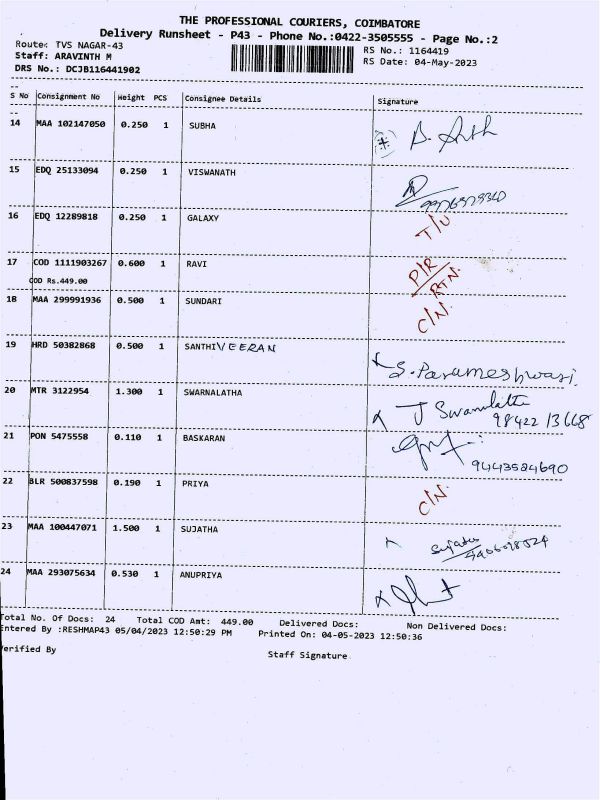 THE PROFESSIONAL COURIERS, COIMBATORE
Delivery Runsheet - P43 - Phone No.:0422-3505555 - Page No.:2
Route: TVS NAGAR-43 RS No.: 1164419
Staff: ARAVINTH M RS Date: 04-May-2023
DRS No.: DCJB116441902
S No Consignment No Weight PCS Consignee Details Signature
14 MAA 102147050 0.250 1 SUBHA
15 EDQ 25133094 0.250 1 VISWANATH
16 EDQ 12289818 0.250 1 GALAXY T/U
17 COD 1111903267 0.600 1 RAVI P/R
COD Rs.449.00 RTN.
18 MAA 299991936 0.500 1 SUNDARI C/N.
19 HRD 50382868 0.500 1 SANTHIVEERAN S.Parameshwari.
20 MTR 3122954 1.300 1 SWARNALATHA J Swarnalatha
98422 13668
21 PON 5475558 0.110 1 BASKARAN
9443584690
22 BLR 500837598 0.190 1 PRIYA C/N.
23 MAA 100447071 1.500 1 SUJATHA Sujatha
24 MAA 293075634 0.530 1 ANUPRIYA
Total No. Of Docs: 24 Total COD Amt: 449.00 Delivered Docs: Non Delivered Docs:
Entered By :RESHMAP43 05/04/2023 12:50:29 PM Printed On: 04-05-2023 12:50:36
Verified By Staff Signature